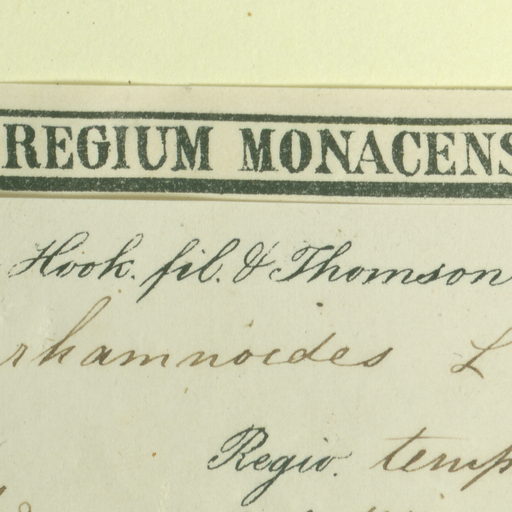 REGIUM MONACENS
Hook. fil. & Thomson
rhamnoides L
Regio. temp